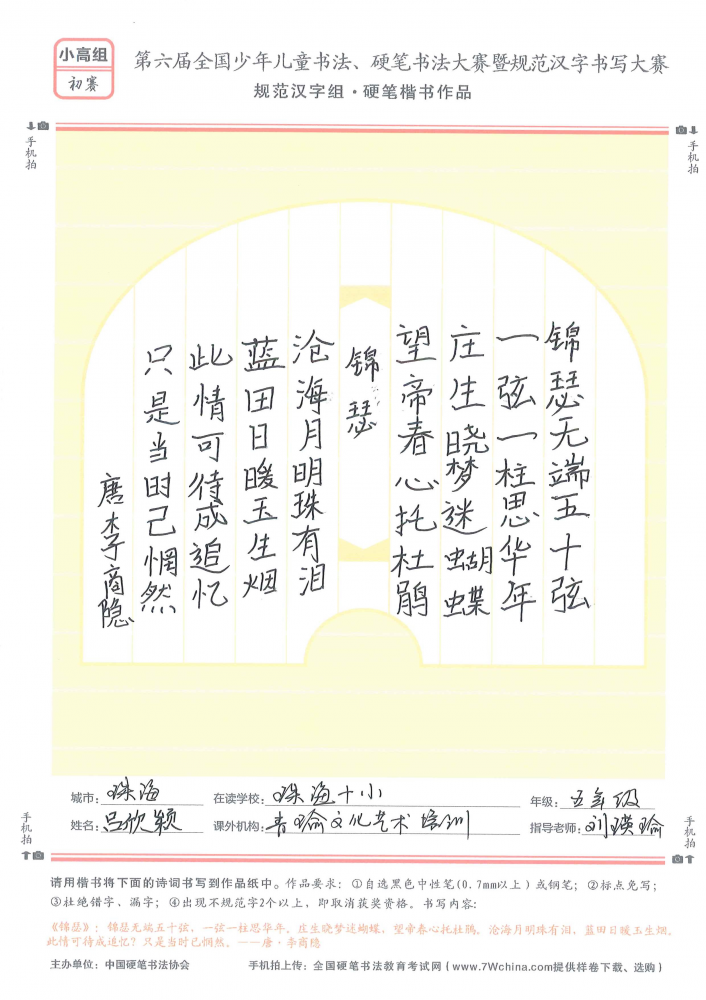 小高组
初赛
第六届全国少年儿童书法、硬笔书法大赛暨规范汉字书写大赛
规范汉字组·硬笔楷书作品
手机拍
手机拍
锦瑟无端五十弦
一弦一柱思华年
庄生晓梦迷蝴蝶
望帝春心托杜鹃
锦瑟
沧海月明珠有泪
蓝田日暖玉生烟
此情可待成追忆
只是当时已惘然
唐李商隐
城市：珠海 在读学校：珠海十小 年级：五年级
姓名：吕欣颖 课外机构：青瑜文化艺术培训 指导老师：刘瑛瑜
手机拍
手机拍
请用楷书将下面的诗词书写到作品纸中。作品要求：①自选黑色中性笔(0.7mm以上)或钢笔；②标点免写；
③杜绝错字，漏字；④出现不规范字2个以上，即取消获奖资格。书写内容：
《锦瑟》：锦瑟无端五十弦，一弦一柱思华年。庄生晓梦迷蝴蝶，望帝春心托杜鹃。沧海月明珠有泪，蓝田日暖玉生烟。
此情可待成追忆？只是当时已惘然。——唐·李商隐
主办单位：中国硬笔书法协会 手机拍上传：全国硬笔书法教育考试网（www.7Wchina.com提供样卷下载、选购）